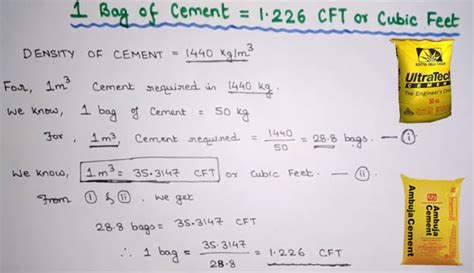 1 Bag of Cement = 1.226 CFT or Cubic Feet
DENSITY OF CEMENT = 1440 Kg/m³
For, 1m³ Cement required is 1440 kg.
We know, 1 bag of Cement = 50 kg
For, 1m³ Cement required = 1440/50 = 28.8 bags. — (i)
We know, 1m³ = 35.3147 CFT or Cubic Feet. — (ii).
From (i) & (ii). We get
28.8 bags = 35.3147 CFT
∴ 1 bag = 35.3147/28.8 = 1.226 CFT
UltraTech
CEMENT
The Engineer's Choice
Ambuja Cement
Ambuja Cement